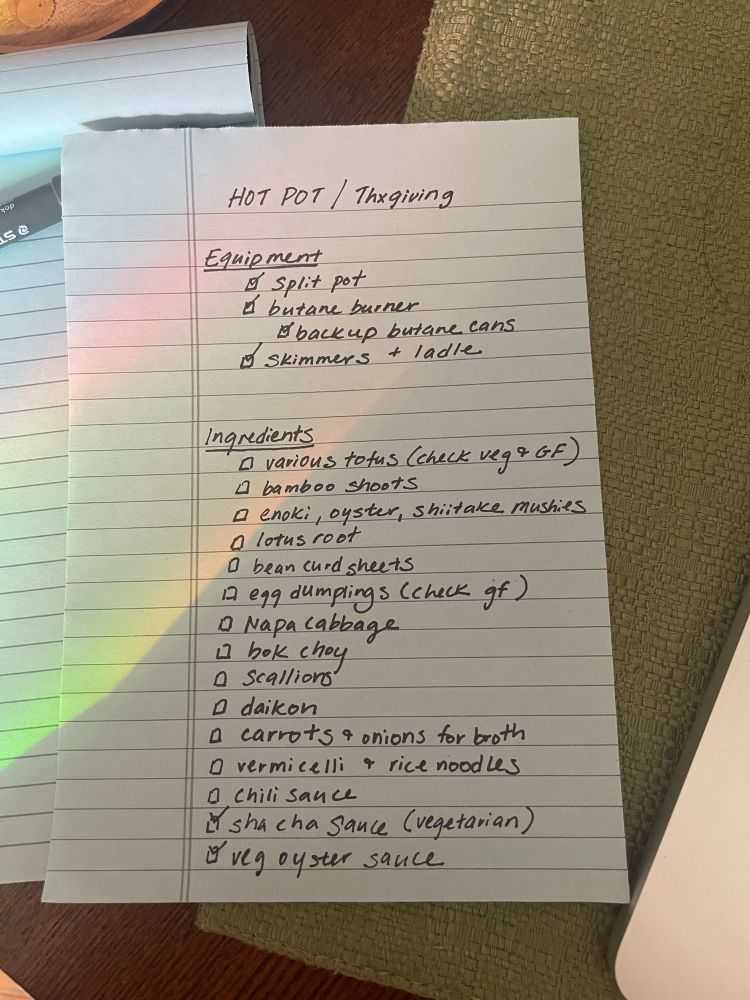 HOT POT / Thxgiving
Equipment
☑ split pot
☑ butane burner
☑ backup butane cans
☑ skimmers + ladle
Ingredients
☐ various tofus (check veg & GF)
☐ bamboo shoots
☐ enoki, oyster, shiitake mushies
☐ lotus root
☐ bean curd sheets
☐ egg dumplings (check gf)
☐ Napa cabbage
☐ bok choy
☐ scallions
☐ daikon
☐ carrots & onions for broth
☐ vermicelli & rice noodles
☐ chili sauce
☑ sha cha sauce (vegetarian)
☑ veg oyster sauce